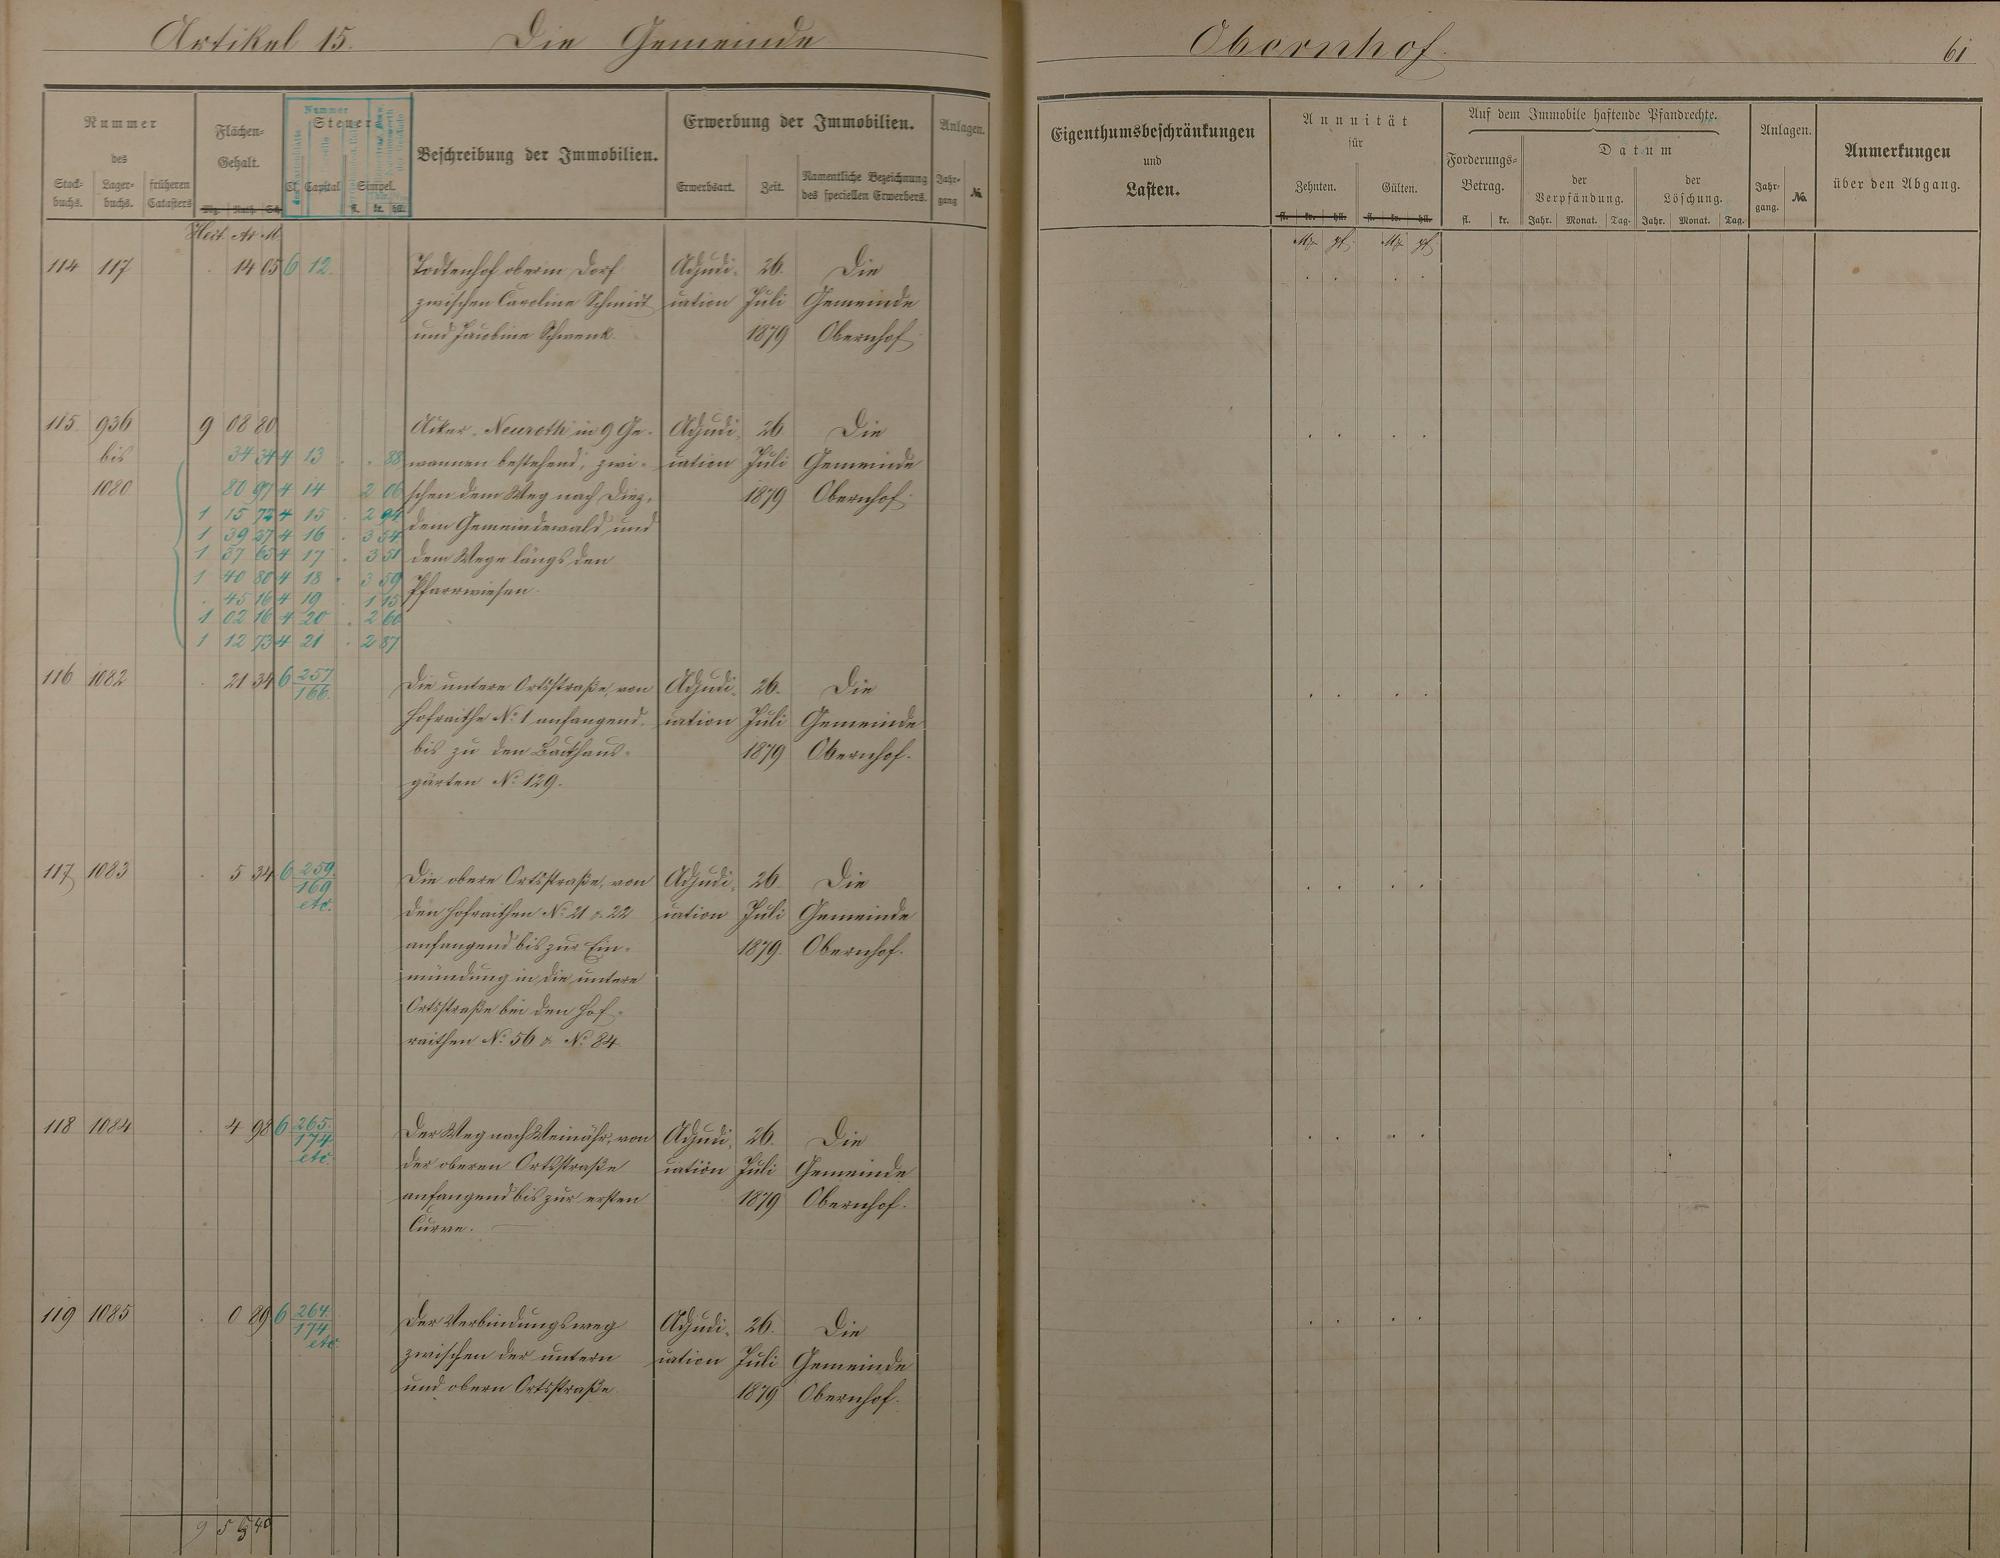 Artikel 15. Die Gemeinde Obernhof. 61
Nummer des
Stock-buchs. Lager-buchs. früheren Catasters
Flächen-Gehalt.
Mg. Ruth. Sch.
Hect. Ar M.
Nummer
Steuer
Cl. Capital Simpel.
fl. kr. hll.
Beschreibung der Immobilien.
Erwerbung der Immobilien.
Erwerbsart. Zeit. Namentliche Bezeichnung des speciellen Erwerbers.
Anlagen.
Jahr-gang №.
Eigenthumsbeschränkungen
und
Lasten.
Annuität
für
Zehnten. Gülten.
fl. kr. hll. fl. kr. hll.
Mk pf. Mk pf.
Auf dem Immobile haftende Pfandrechte.
Forderungs-Betrag.
fl. kr.
Datum
der Verpfändung. der Löschung.
Jahr. Monat. Tag. Jahr. Monat. Tag.
Anlagen.
Jahr-gang. №.
Anmerkungen
über den Abgang.
114 117 . 14 05 6 12. Todtenhof oberm Dorf Adjudi- 26. Die
zwischen Caroline Schmidt cation Juli Gemeinde
und Jacobine Schwenk. 1879 Obernhof.
115. 936 9 08 80 Acker "Neuroth" in 9 Ge- Adjudi- 26 Die
bis 34 34 4 13 . . 88 wannen bestehend, zwi- cation Juli Gemeinde
1080 80 97 4 14 2 06 schen dem Weg nach Diez, 1879 Obernhof.
1 15 72 4 15 . 2 94 dem Gemeindewald und
1 39 27 4 16 . 3 54
1 37 65 4 17 . 3 51 dem Wege längs den
1 40 80 4 18 . 3 59 Pfarrwiesen.
. 45 16 4 19 . 1 15
1 02 16 4 20 . 2 60
1 12 73 4 21 . 2 87
116 1082 . 21 34 6 257/166. Die untere Ortsstraße, von Adjudi- 26. Die
Hofraithe No. 1 anfangend, cation Juli Gemeinde
bis zu den Backhaus- 1879 Obernhof.
gärten No. 129.
117 1083 . 5 34 6 259./169 etc. Die obere Ortsstraße, von Adjudi- 26. Die
den Hofraithen No. 21 & 22 cation Juli Gemeinde
anfangend bis zur Ein- 1879. Obernhof.
mündung in die untere
Ortsstraße bei den Hof-
raithen No. 56 & No. 84.
118 1084 . 4 98 6 265./174 etc. Der Weg nach Weinähr, von Adjudi- 26. Die
der oberen Ortsstraße cation Juli Gemeinde
anfangend bis zur ersten 1879 Obernhof.
Curve.
119 1085 . 0 89 6 264./174 etc. Der Verbindungsweg Adjudi- 26. Die
zwischen der untern cation Juli Gemeinde
und obern Ortsstraße. 1879 Obernhof.